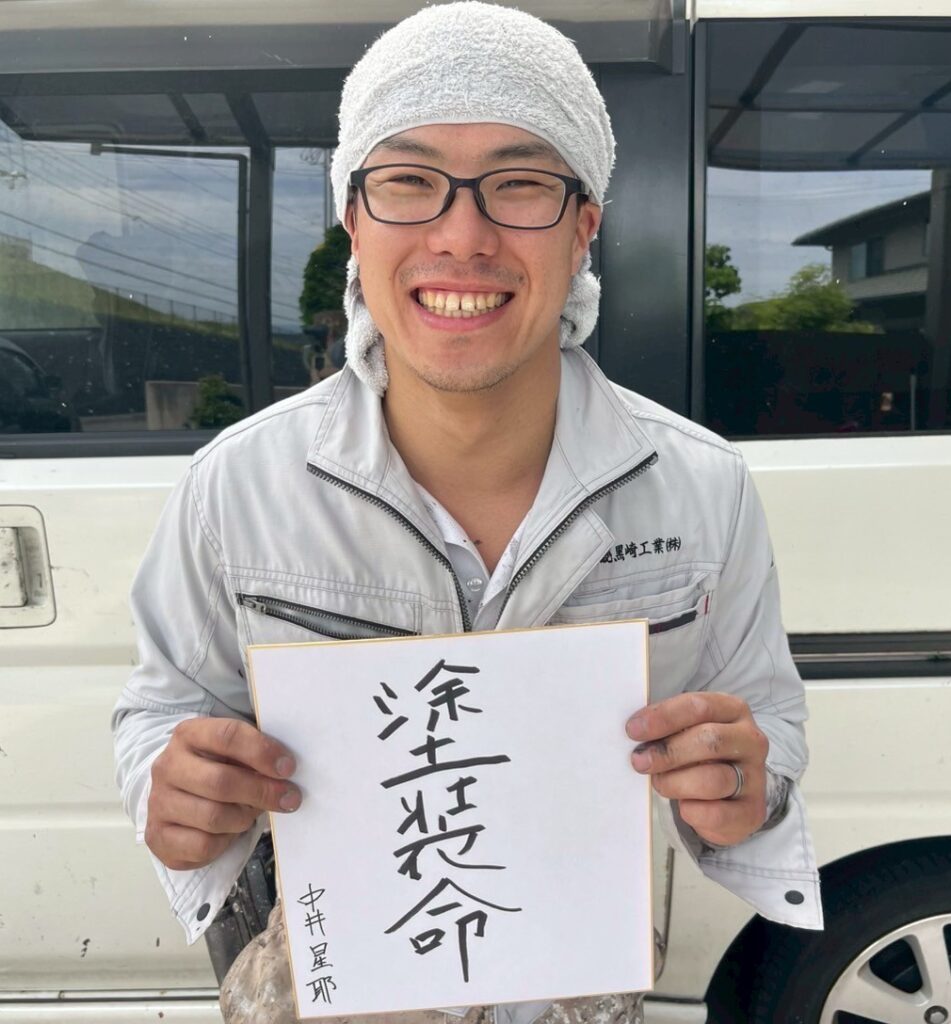 黒崎工業㈱
塗装命
中井星耶